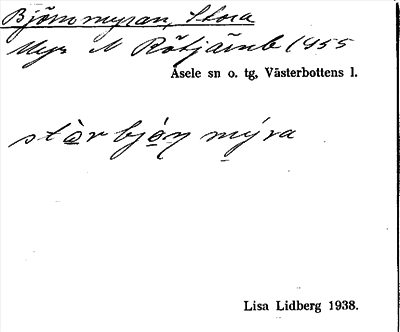 Björnmyran, Stora
Myr N Rötjärnb 1455
Åsele sn o. tg, Västerbottens l.
stòr bjǿɳ mýra
Lisa Lidberg 1938.